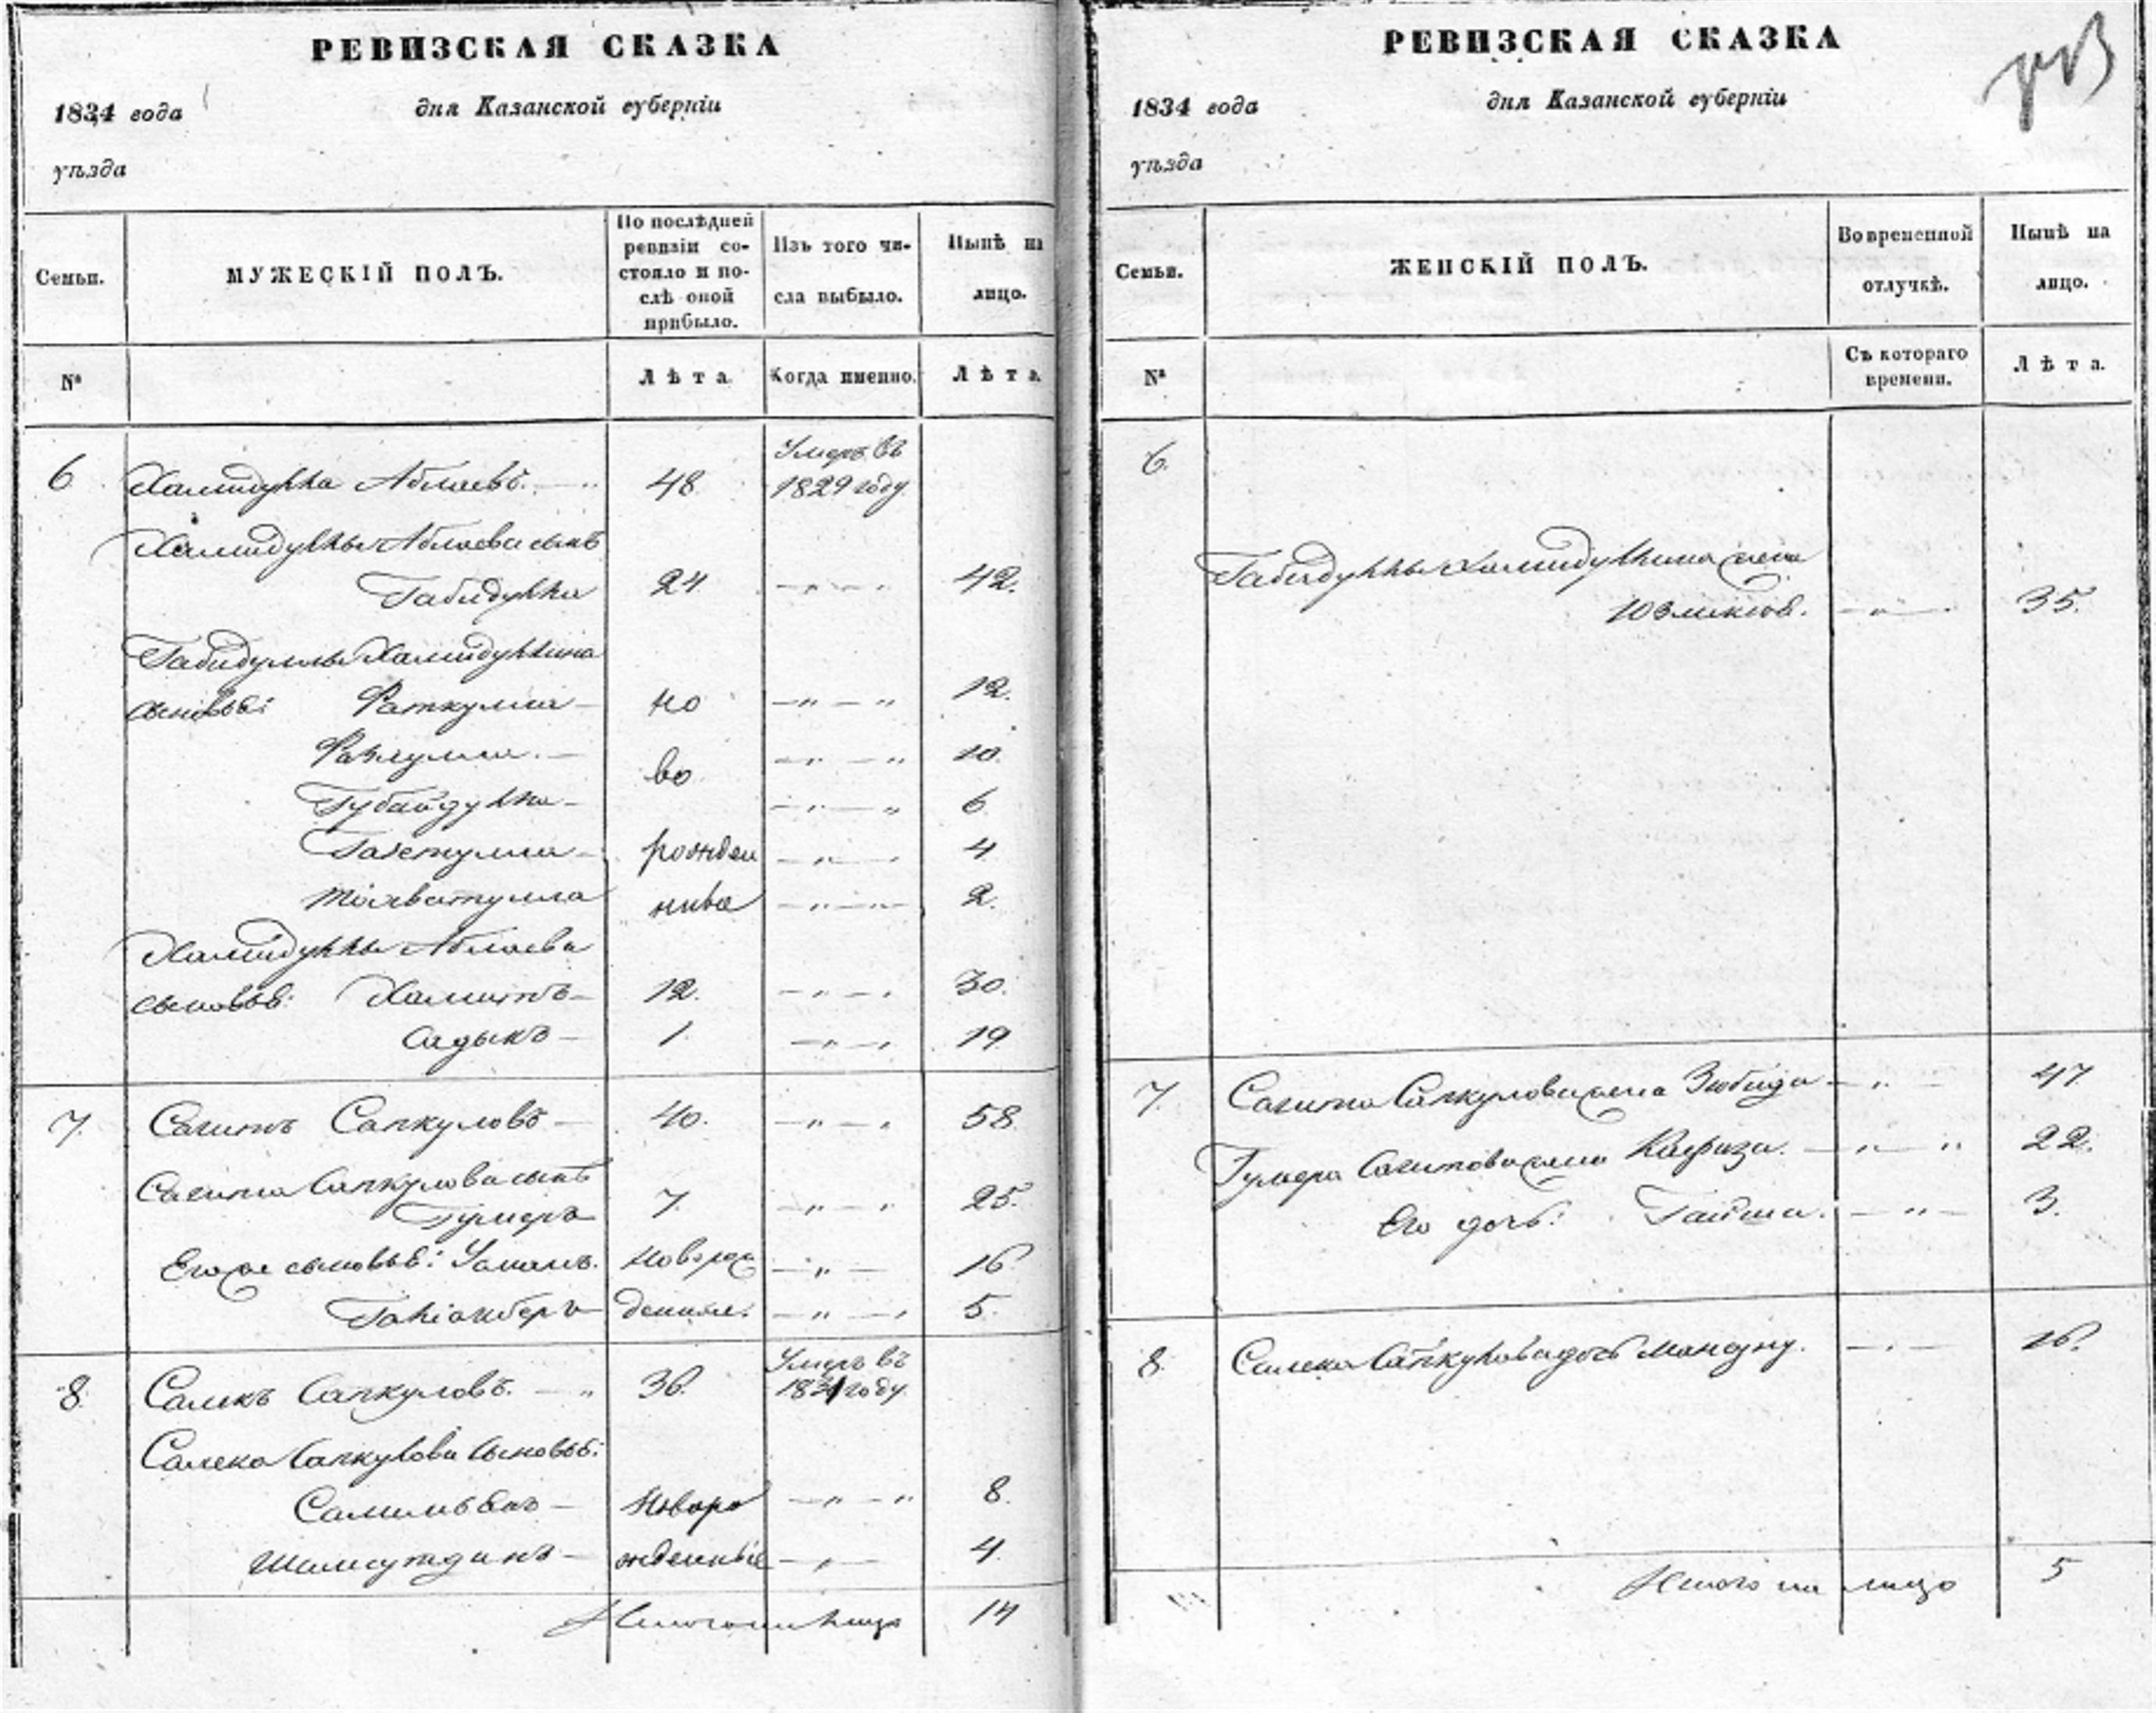 РЕВИЗСКАЯ СКАЗКА
1834 года дня Казанской губерніи
уѣзда
Семьи. МУЖЕСКІЙ ПОЛЪ. По послѣдней ревизіи состояло и послѣ оной прибыло. Изъ того числа выбыло. Нынѣ на лицо.
№ Лѣта Когда именно. Лѣта
Умеръ въ
6 Халидулла Аблаевъ 48 1829 году
Халидуллы Аблаева сынъ
Габидулла 24 42.
Габидуллы Халидуллина
сыновья: Фаткулла но 12.
Фазлулла во 10.
Губайдулла 6
4
рожден
ныя 2.
Халидуллы Аблаева
сыновья: Халитъ 12. 30.
Садыкъ 1. 19
7. Сагитъ Сапкуловъ 40. 58
Сагита Сапкулова сынъ
Гумеръ 7. 25.
Его же сыновья: Усманъ. новорож 16
денные. 5.
Умеръ въ
8. Саликъ Сапкуловъ. 36. 1831 году.
Салека Сапкулова сыновья:
новоро 8.
жденные 4.
Итого на лицо 14
РЕВИЗСКАЯ СКАЗКА
1834 года дня Казанской губерніи
уѣзда
Семьи. ЖЕНСКІЙ ПОЛЪ. Во временной отлучкѣ. Нынѣ на лицо.
№ Съ котораго времени. Лѣта.
6.
Габидуллы Халидуллина жена
35.
7. Сагита Сапкулова жена Зюбида 47
Гумера Сагитова жена 22.
Его дочь: Гайша. 3.
8. Салека Сапкулова дочь 16.
Итого на лицо 5